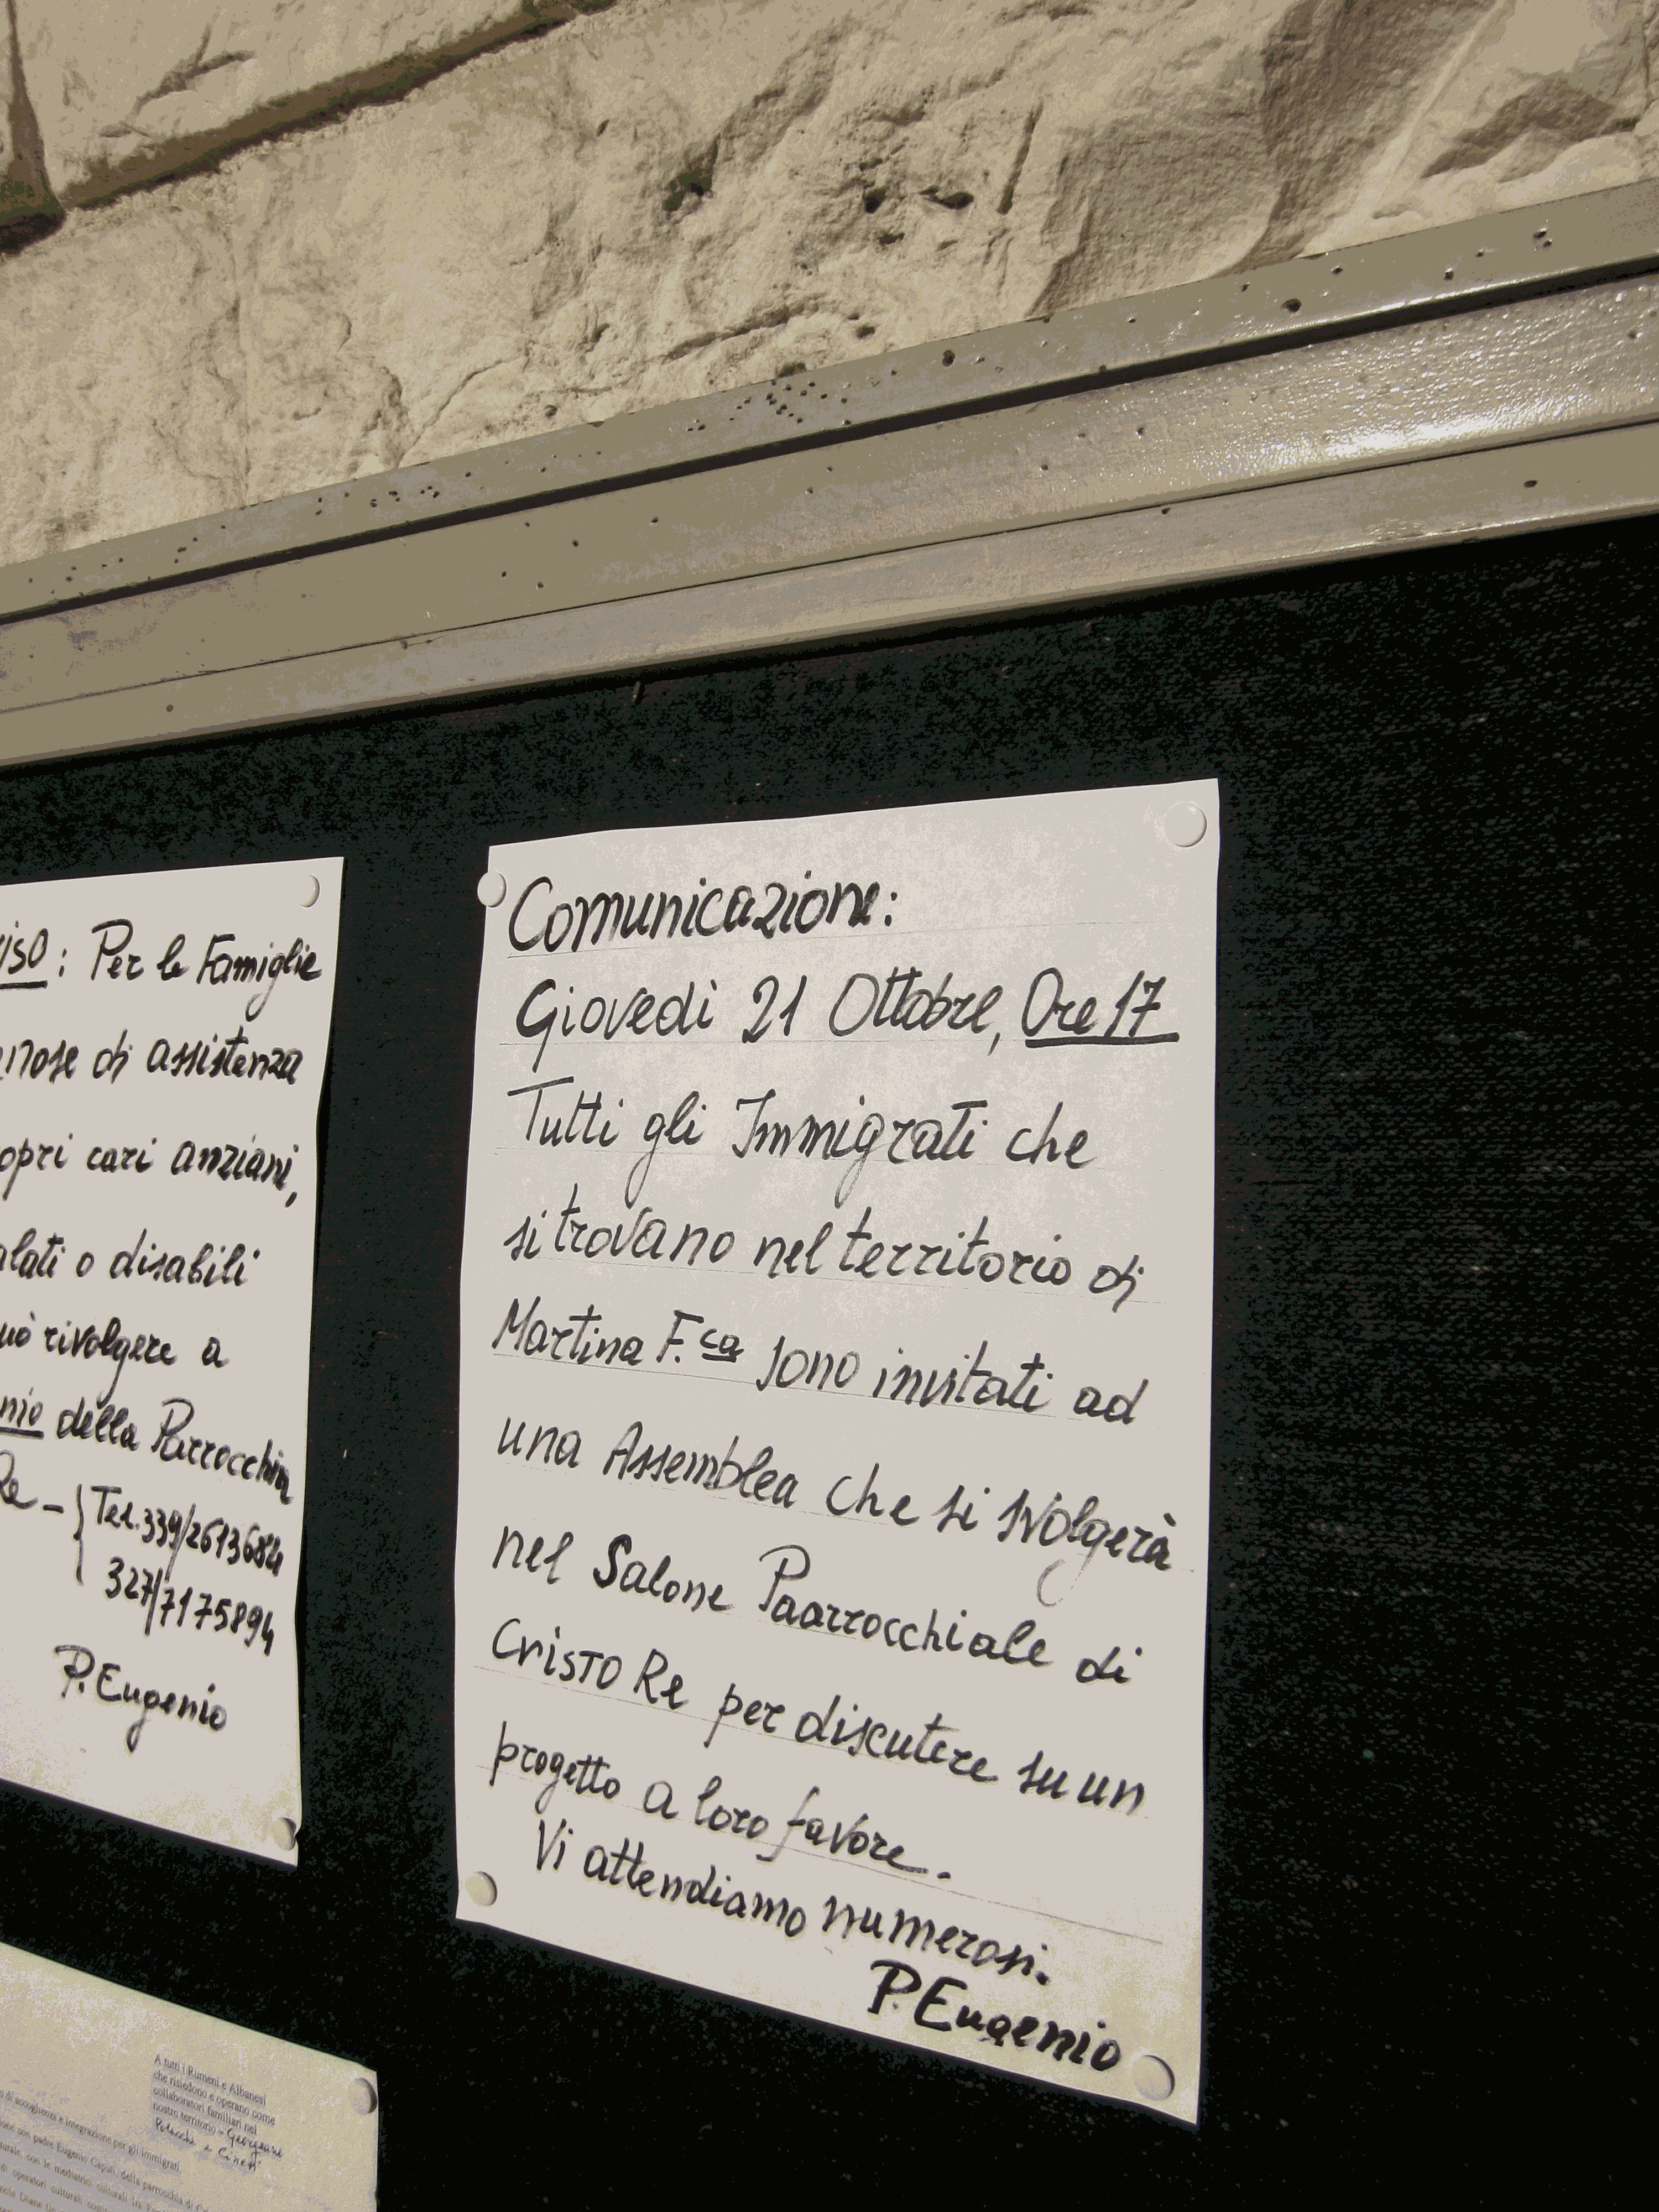 : Per le Famiglie
di assistenza
cari anziani,
o disabili
rivolgere a
della Parrocchia
Re - { Tel. 339/2613684
327/7175894
P. Eugenio
Comunicazione:
Giovedì 21 Ottobre, Ore 17
Tutti gli Immigrati che
si trovano nel territorio di
Martina F.ca sono invitati ad
una Assemblea che si svolgerà
nel Salone Paarrocchiale di
Cristo Re per discutere su un
progetto a loro favore.
Vi attendiamo numerosi.
P. Eugenio
A tutti i Rumeni e Albanesi
che risiedono e operano come
collaboratori familiari nel
nostro territorio - Georgiani
Polacchi e Cinesi
di accoglienza e integrazione per gli immigrati.
con padre Eugenio Caputi, della parrocchia di
con le mediatrici culturali
di operatori culturali
Diane